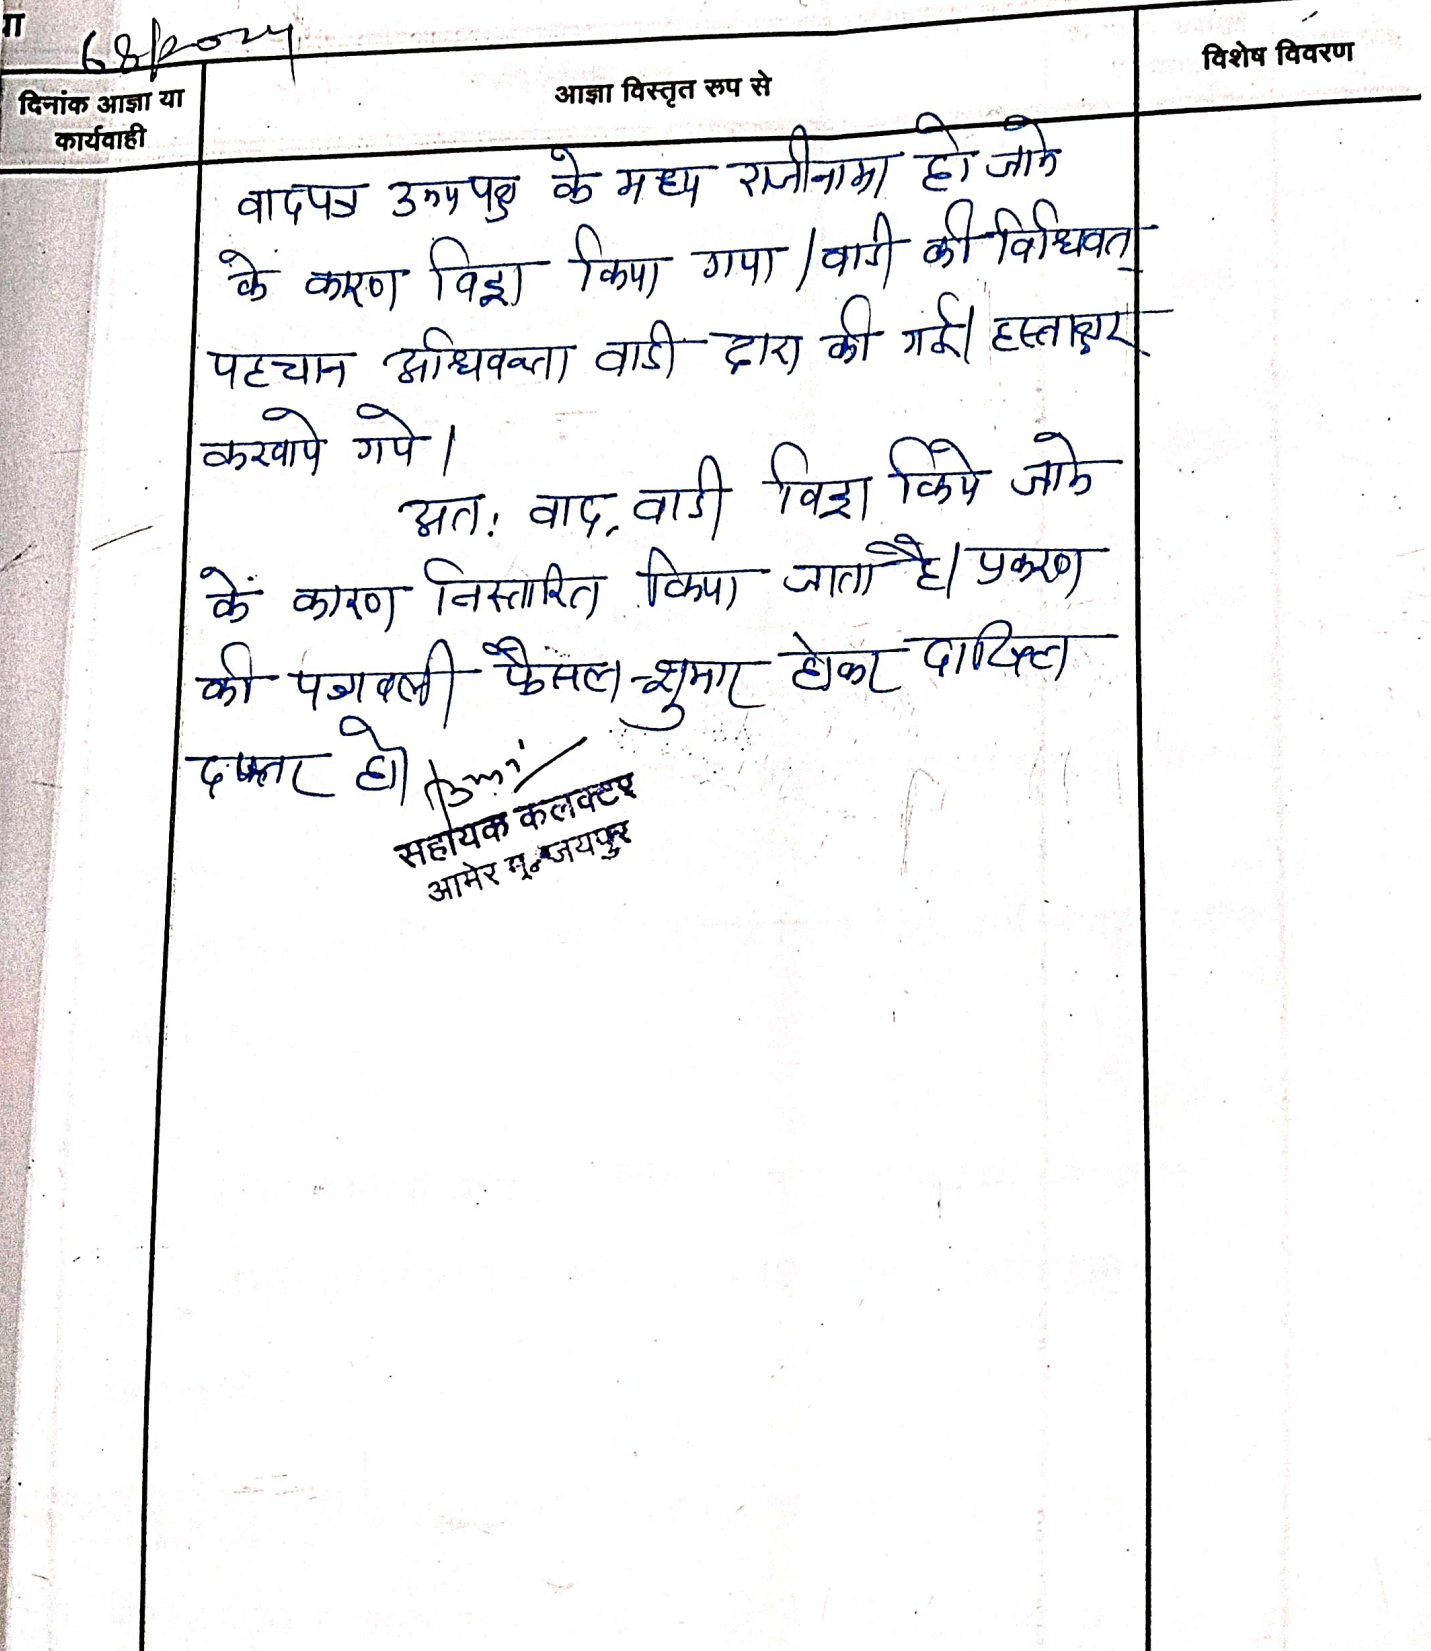 68/2024
विशेष विवरण
दिनांक आज्ञा या
कार्यवाही
आज्ञा विस्तृत रुप से
वादपत्र उभयपक्ष के मध्य राजीनामा हो जाने
के कारण विड्रा किया गया। वादी की विधिवत
पहचान अधिवक्ता वादी द्वारा की गई। हस्ताक्षर
करवाये गये।
अतः वाद, वादी विड्रा किये जाने
के कारण निस्तारित किया जाता है। प्रकरण
की पत्रावली फैसल शुमार होकर दाखिल
दफ्तर हो।
सहायक कलक्टर
आमेर मु. जयपुर